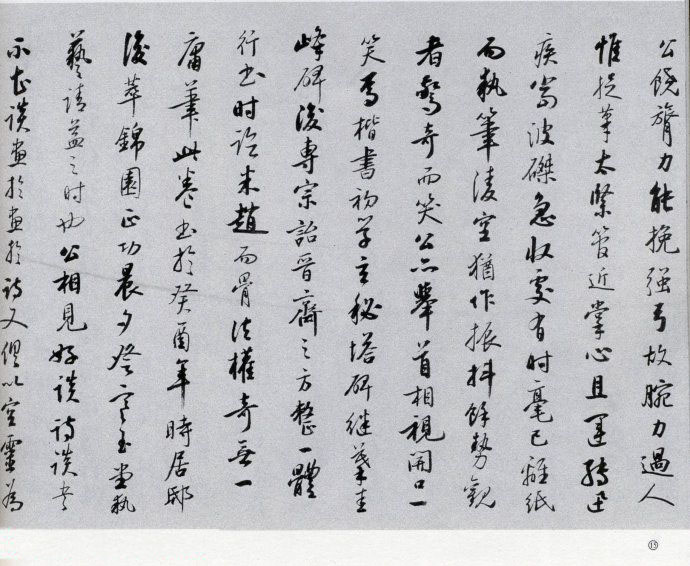 公饒膂力能挽强弓故腕力過人
惟捉筆太緊管近掌心且運轉迅
疾當波磔急收處有时毫已離紙
而執筆淩空猶作振抖餘勢觀
者驚奇而笑公亦舉首相視開口一
笑焉楷書初学玄秘塔碑继摹圭
峰碑後專宗詒晋齋之方整一體
行书时米趙而骨法權奇無一
庸筆此卷书於癸酉年時居邸
後萃錦園正功晨夕登寒玉堂執
藝請益之时也公相見好談詩談书
不甚談画於画於詩又俱以空靈為
⑮